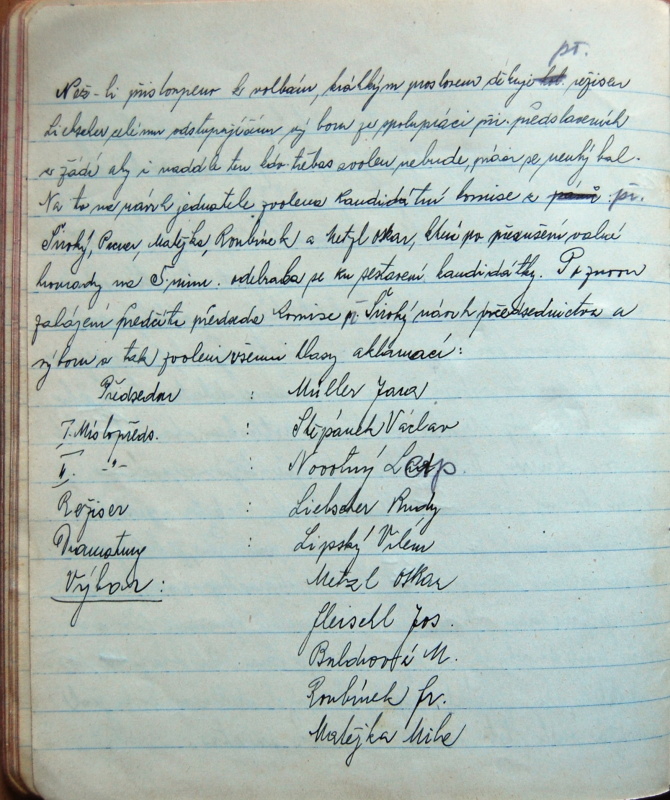 př.
Než-li přistoupeno k volbám, krátkým proslovem děkuje režiser
Liebscher celému odstupujícímu výboru za spolupráci při. představeních
a žádá aby i nadále ten kdo třebas zvolen nebude, práce se neuhýbal.
Na to na návrh jednatele zvolena kandidátní komise z př.
Široký, Matějka, Roubínek a Metzl Oskar, která po přerušení valné
hromady na 5 min. odebrala se ku sestavení kandidátky. Po znovu
zahájení předčítá předseda komise př. Široký návrh předsednictva a
výboru a tak zvoleni všemi hlasy aklamací:
Předseda : Müller Jara
I. Místopředs. : Štěpánek Václav
II. -"- : Novotný Lad.
Režiser : Liebscher Rudy
Dramaturg : Lipský Vilém
Výbor: Metzl Oskar
Fleischl Jos.
M.
Roubínek Fr.
Matějka Mila